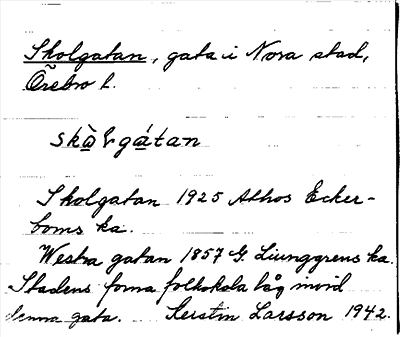 Skolgatan, gata i Nora stad,
Örebro l.
skò̱ɭgá̱tan
Skolgatan 1925 Athos Ecker-
boms ka.
Westra gatan 1857 G. Liunggrens ka.
Stadens forna folkskola låg invid
denna gata. Kerstin Larsson 1942.